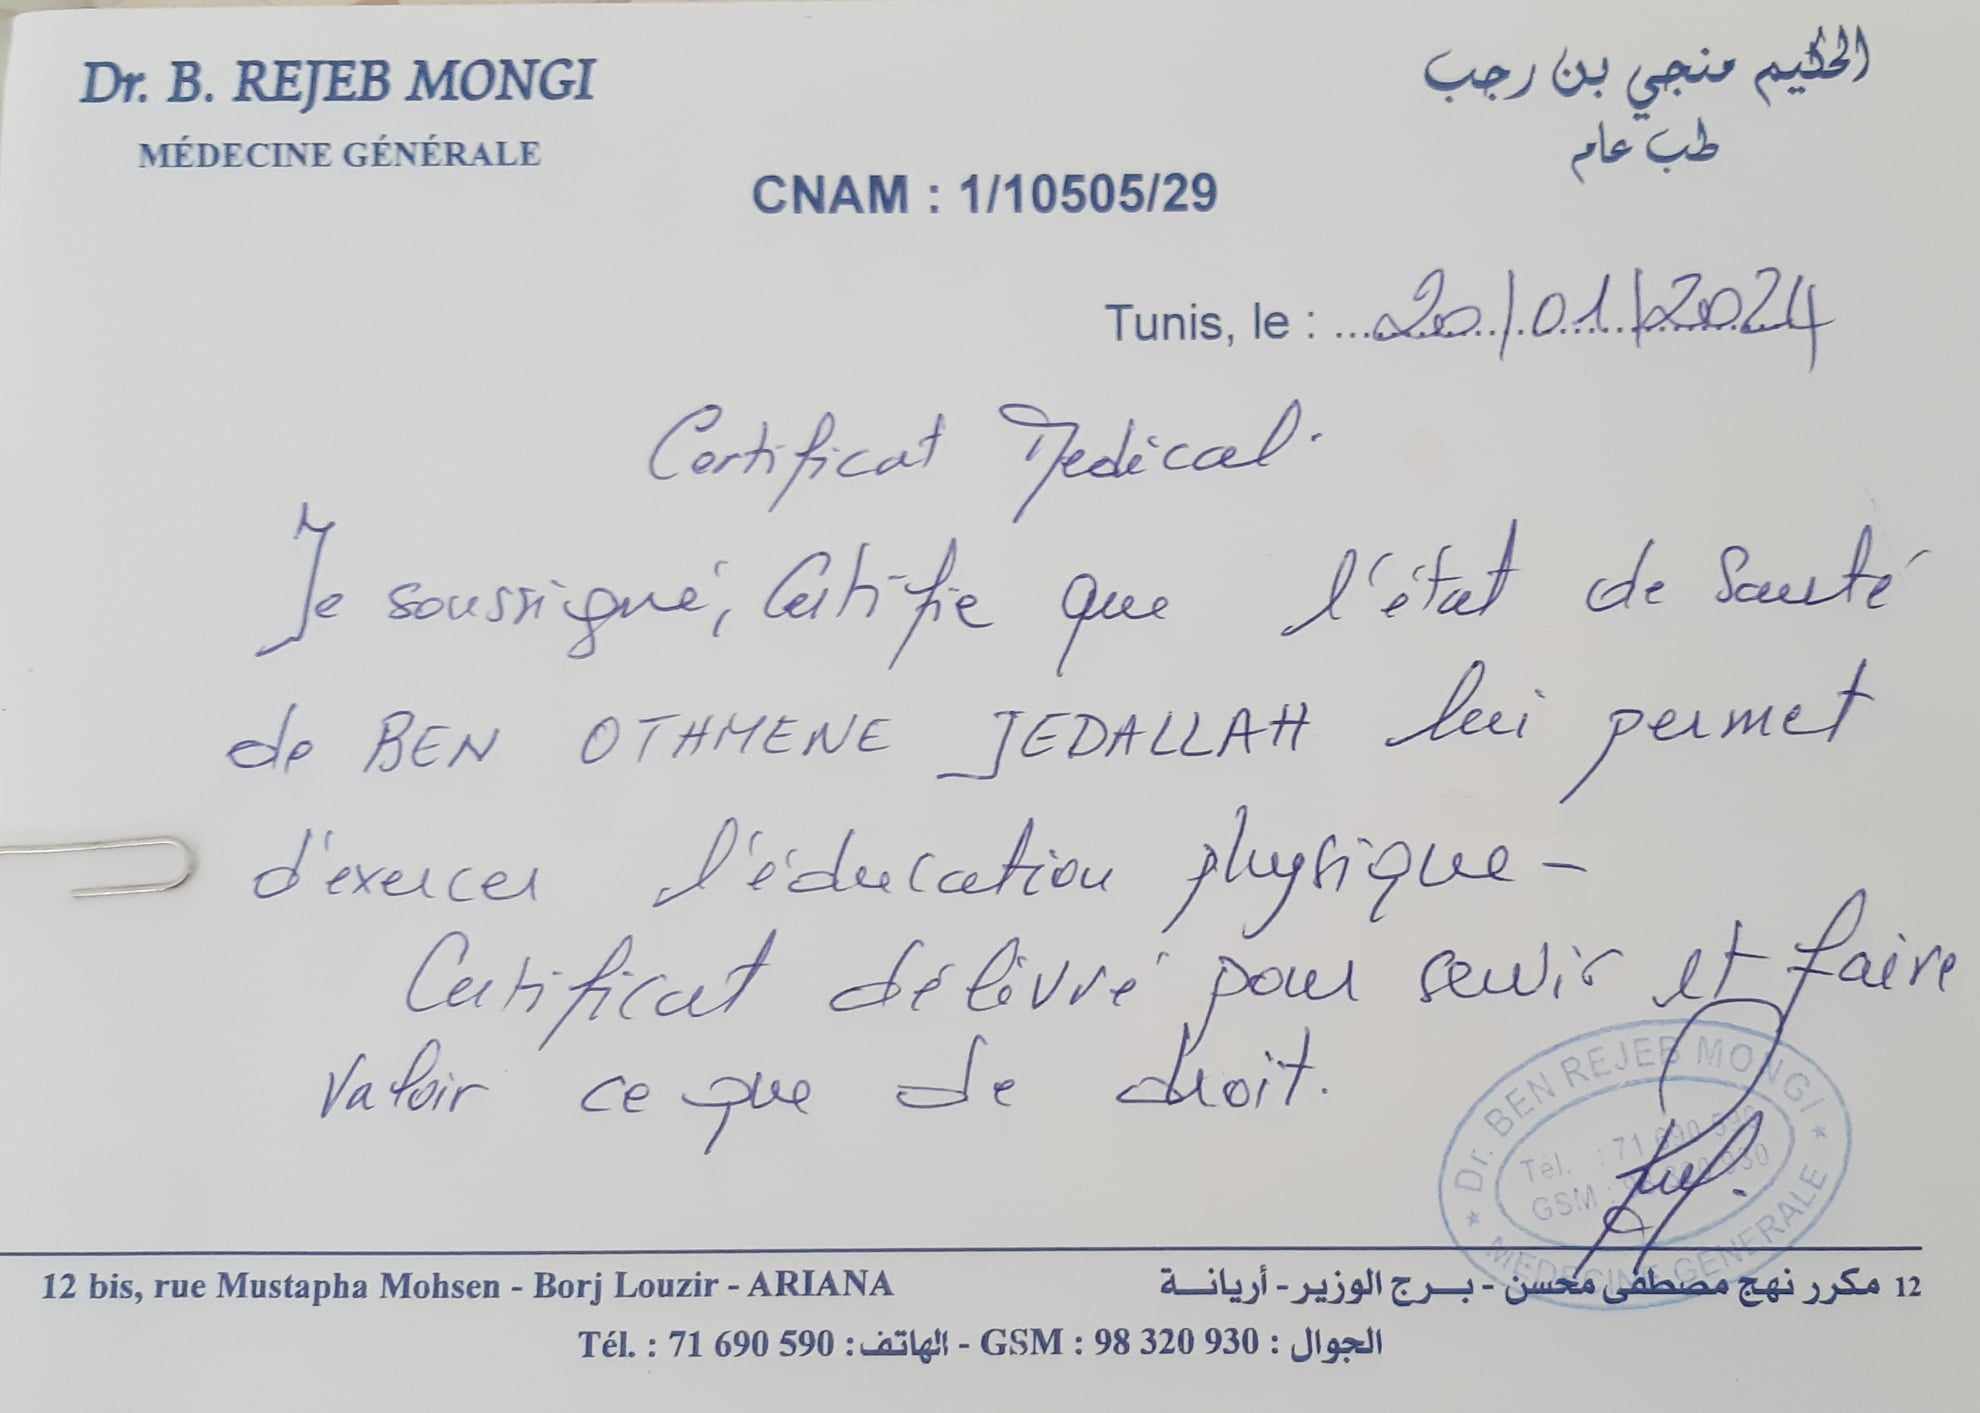 Dr. B. REJEB MONGI
MÉDECINE GÉNÉRALE
الحكيم منجي بن رجب
طب عام
CNAM : 1/10505/29
Tunis, le : 20/01/2024
Certificat Medical.
Je soussigné, Certifie que l'état de Santé
de BEN OTHMENE JEDALLAH lui permet
d'exercer l'éducation physique-
Certificat délivré pour servir et faire
valoir ce que de droit.
Dr. BEN REJEB MONGI
Tél. : 71 690 590
GSM : 98 320 930
* MEDECINE GENERALE *
12 bis, rue Mustapha Mohsen - Borj Louzir - ARIANA
12 مكرر نهج مصطفى محسن - برج الوزير - أريانة
Tél. : 71 690 590 : الهاتف - GSM : 98 320 930 : الجوال